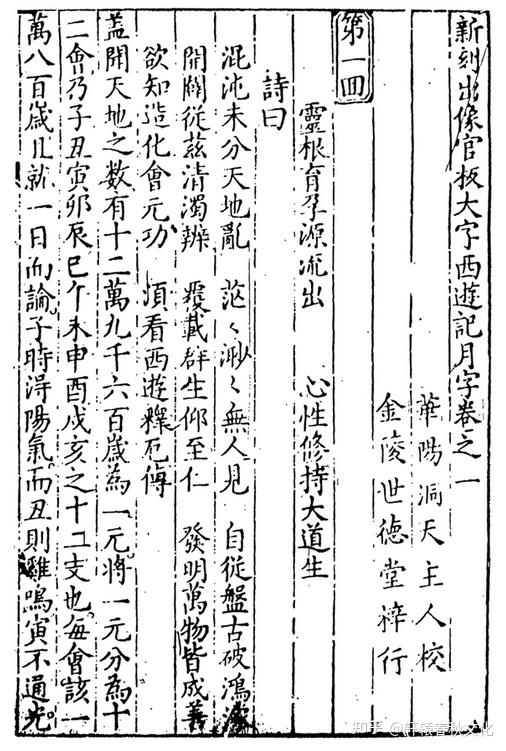 新刻出像官板大字西遊記月字卷之一
華陽洞天主人校
金陵世德堂梓行
第一回
靈根育孕源流出　心性修持大道生
詩曰
混沌未分天地亂　茫々渺々無人見　自從盤古破鴻濛
開闢從茲清濁辨　覆載群生仰至仁　發明萬物皆成善
欲知造化會元功　須看西遊釋厄傳
盖聞天地之數有十二萬九千六百歲為一元。將一元分為十
二會乃子丑寅卯辰巳午未申酉戌亥之十二支也。每會該一
萬八百歲且就一日而論。子時得陽氣。而丑則雞鳴。寅不通光。
知乎 @轩辕春秋文化